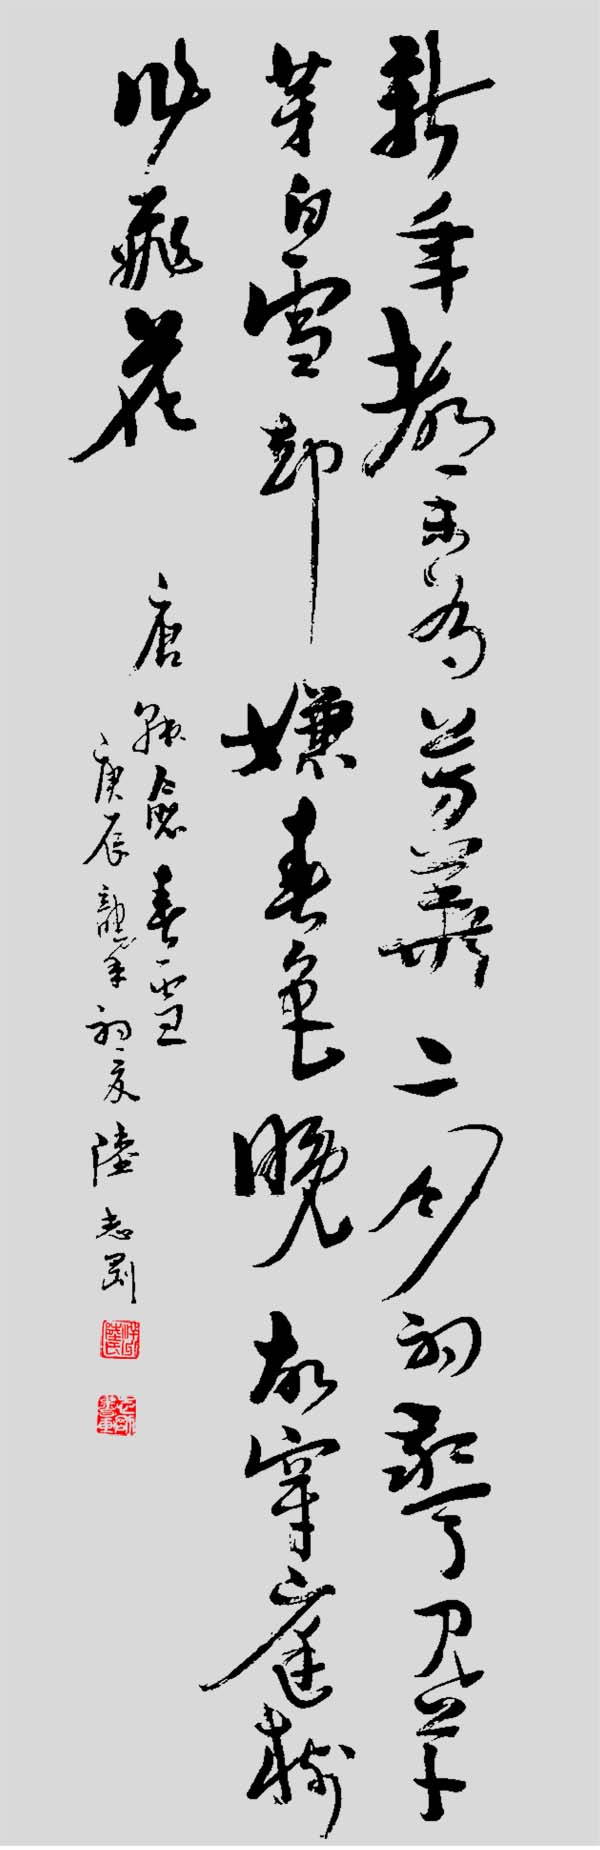 新年都未有芳華二月初驚見草
芽白雪却嫌春色晚故穿庭樹
作飛花
唐韓愈春雪
庚辰龍年初夏陸志剛